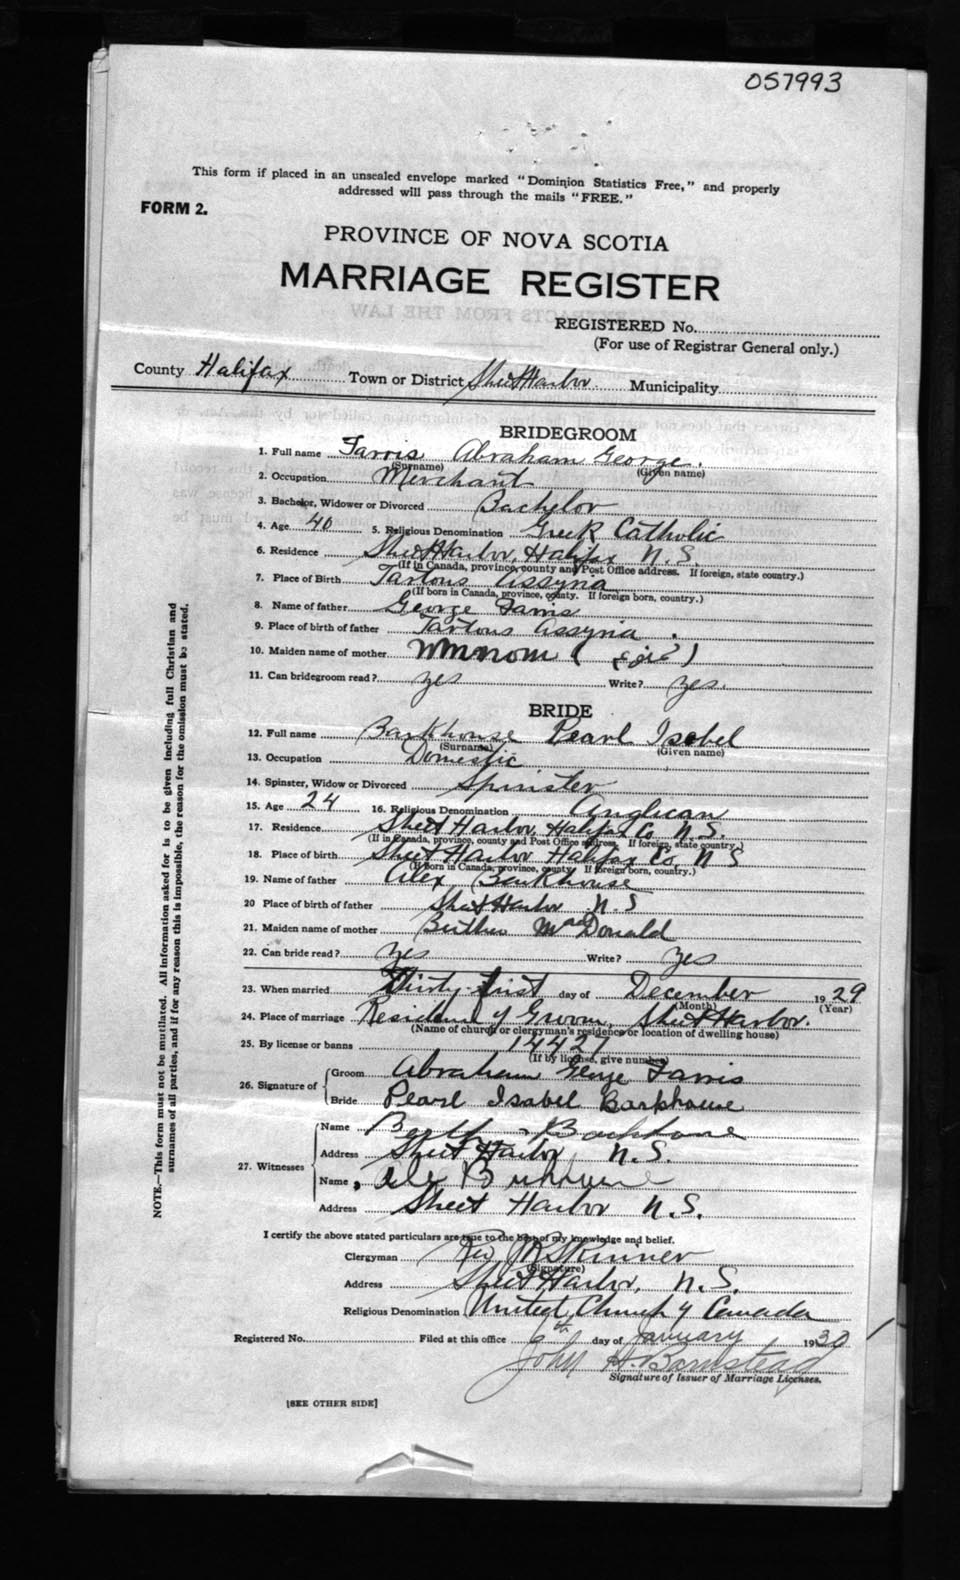 057993
This form if placed in an unsealed envelope marked "Dominion Statistics Free," and properly
addressed will pass through the mails "FREE."
FORM 2.
PROVINCE OF NOVA SCOTIA
MARRIAGE REGISTER
REGISTERED No.
(For use of Registrar General only.)
County Halifax Town or District Sheet Harbor Municipality
BRIDEGROOM
1. Full name Farris Abraham George.
(Surname) (Given name)
2. Occupation Merchant
3. Bachelor, Widower or Divorced Bachelor
4. Age 40 5. Religious Denomination Greek Catholic
6. Residence Sheet Harbor, Halifax N.S.
(If in Canada, province, county and Post Office address. If foreign, state country.)
7. Place of Birth Tartous Assyria
(If born in Canada, province, county. If foreign born, country.)
8. Name of father George Farris
9. Place of birth of father Tartous Assyria
10. Maiden name of mother
11. Can bridegroom read? yes Write? yes.
BRIDE
12. Full name Barkhouse Pearl Isabel
(Surname) (Given name)
13. Occupation Domestic
14. Spinster, Widow or Divorced Spinster
15. Age 24 16. Religious Denomination Anglican
17. Residence Sheet Harbor, Halifax Co N.S.
(If in Canada, province, county and Post Office address. If foreign, state country.)
18. Place of birth Sheet Harbor Halifax Co, N S
(If born in Canada, province, county. If foreign born, country.)
19. Name of father Alex Barkhouse
20 Place of birth of father Sheet Harbor N.S
21. Maiden name of mother MacDonald
22. Can bride read? yes Write? yes
23. When married Thirty-first day of December 1929
(Month) (Year)
24. Place of marriage Residence of Groom, Sheet Harbor.
(Name of church or clergyman's residence or location of dwelling house)
25. By license or banns 14427
(If by license, give number)
26. Signature of Groom Abraham George Farris
Bride Pearl Isabel Barkhouse
27. Witnesses Name Barkhouse
Address Sheet Harbor N.S.
Name
Address Sheet Harbor N.S.
I certify the above stated particulars are true to the best of my knowledge and belief.
Clergyman Rev Skinner
(Signature)
Address Sheet Harbor, N.S.
Religious Denomination United Church of Canada
Registered No. Filed at this office 6th day of January 1930
John H. Barnstead
Signature of Issuer of Marriage Licenses.
[SEE OTHER SIDE]
NOTE.—This form must not be mutilated. All information asked for is to be given including full Christian and
surnames of all parties, and if for any reason this is impossible, the reason for the omission must be stated.